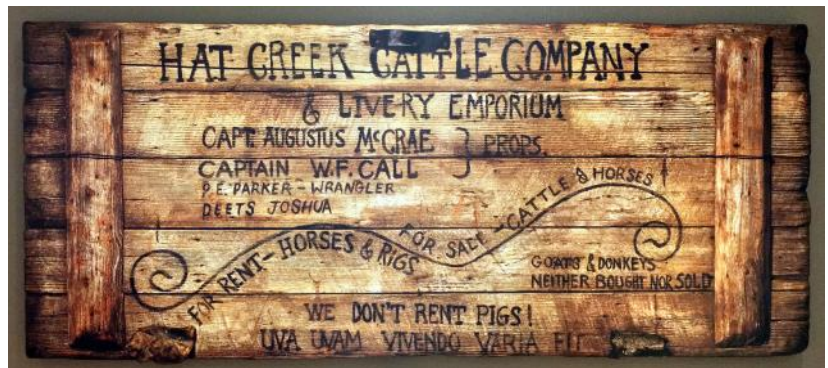 HAT CREEK CATTLE COMPANY
& LIVERY EMPORIUM
CAPT. AUGUSTUS McCRAE } PROPS.
CAPTAIN W.F. CALL
P.E. PARKER - WRANGLER
DEETS JOSHUA
FOR RENT - HORSES & RIGS FOR SALE - CATTLE & HORSES
GOATS & DONKEYS
NEITHER BOUGHT NOR SOLD
WE DON'T RENT PIGS!
UVA UVAM VIVENDO VARIA FIT